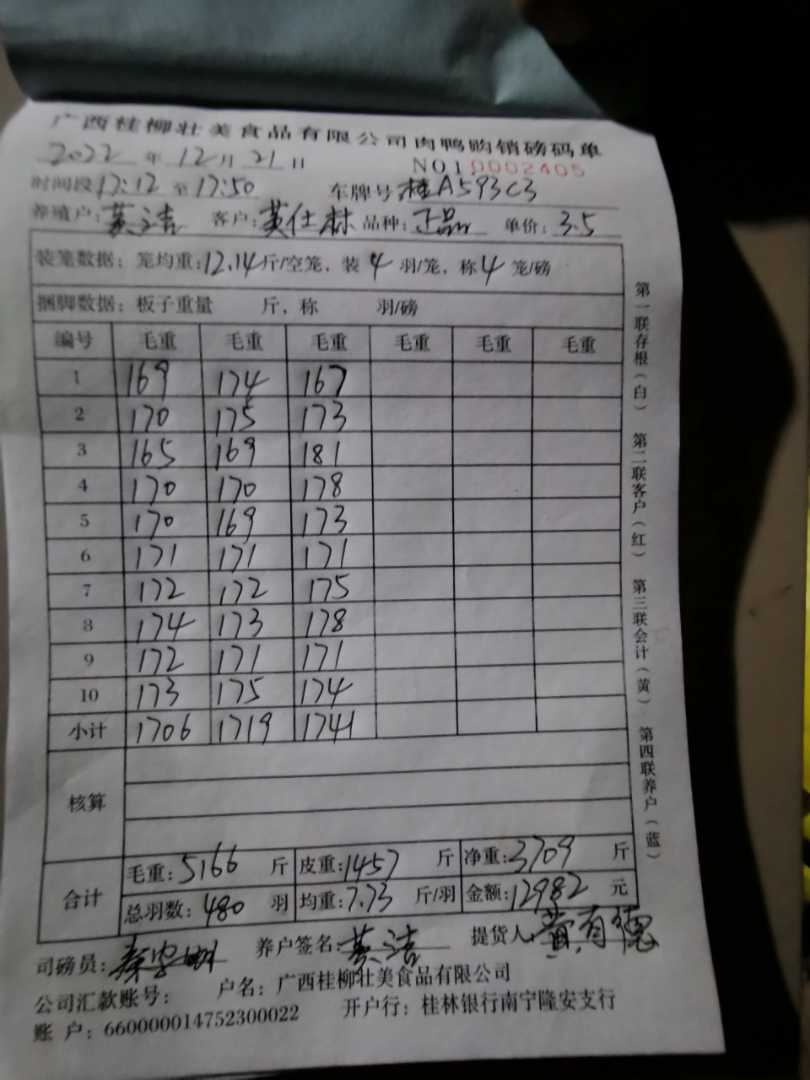 广西桂柳壮美食品有限公司肉鸭购销磅码单
2022 年 12 月 21 日 NO1 0002405
时间段 17:12 至 17:50 车牌号 桂A593C3
养殖户: 黄洁 客户: 黄仕林 品种: 正品 单价: 3.5
装笼数据: 笼均重: 12.14 斤/空笼, 装 4 羽/笼, 称 4 笼/磅
捆脚数据: 板子重量 斤, 称 羽/磅
编号 毛重 毛重 毛重 毛重 毛重 毛重
1 169 174 167
2 170 175 173
3 165 169 181
4 170 170 178
5 170 169 173
6 171 171 171
7 172 172 175
8 174 173 178
9 172 171 171
10 173 175 174
小计 1706 1719 1741
核算
合计
毛重: 5166 斤 皮重: 1457 斤 净重: 3709 斤
总羽数: 480 羽 均重: 7.73 斤/羽 金额: 12982 元
司磅员: 养户签名: 黄洁 提货人: 黄有德
公司汇款账号: 户名: 广西桂柳壮美食品有限公司
账 户: 660000014752300022 开户行: 桂林银行南宁隆安支行
第一联存根(白) 第二联客户(红) 第三联会计(黄) 第四联养户(蓝)